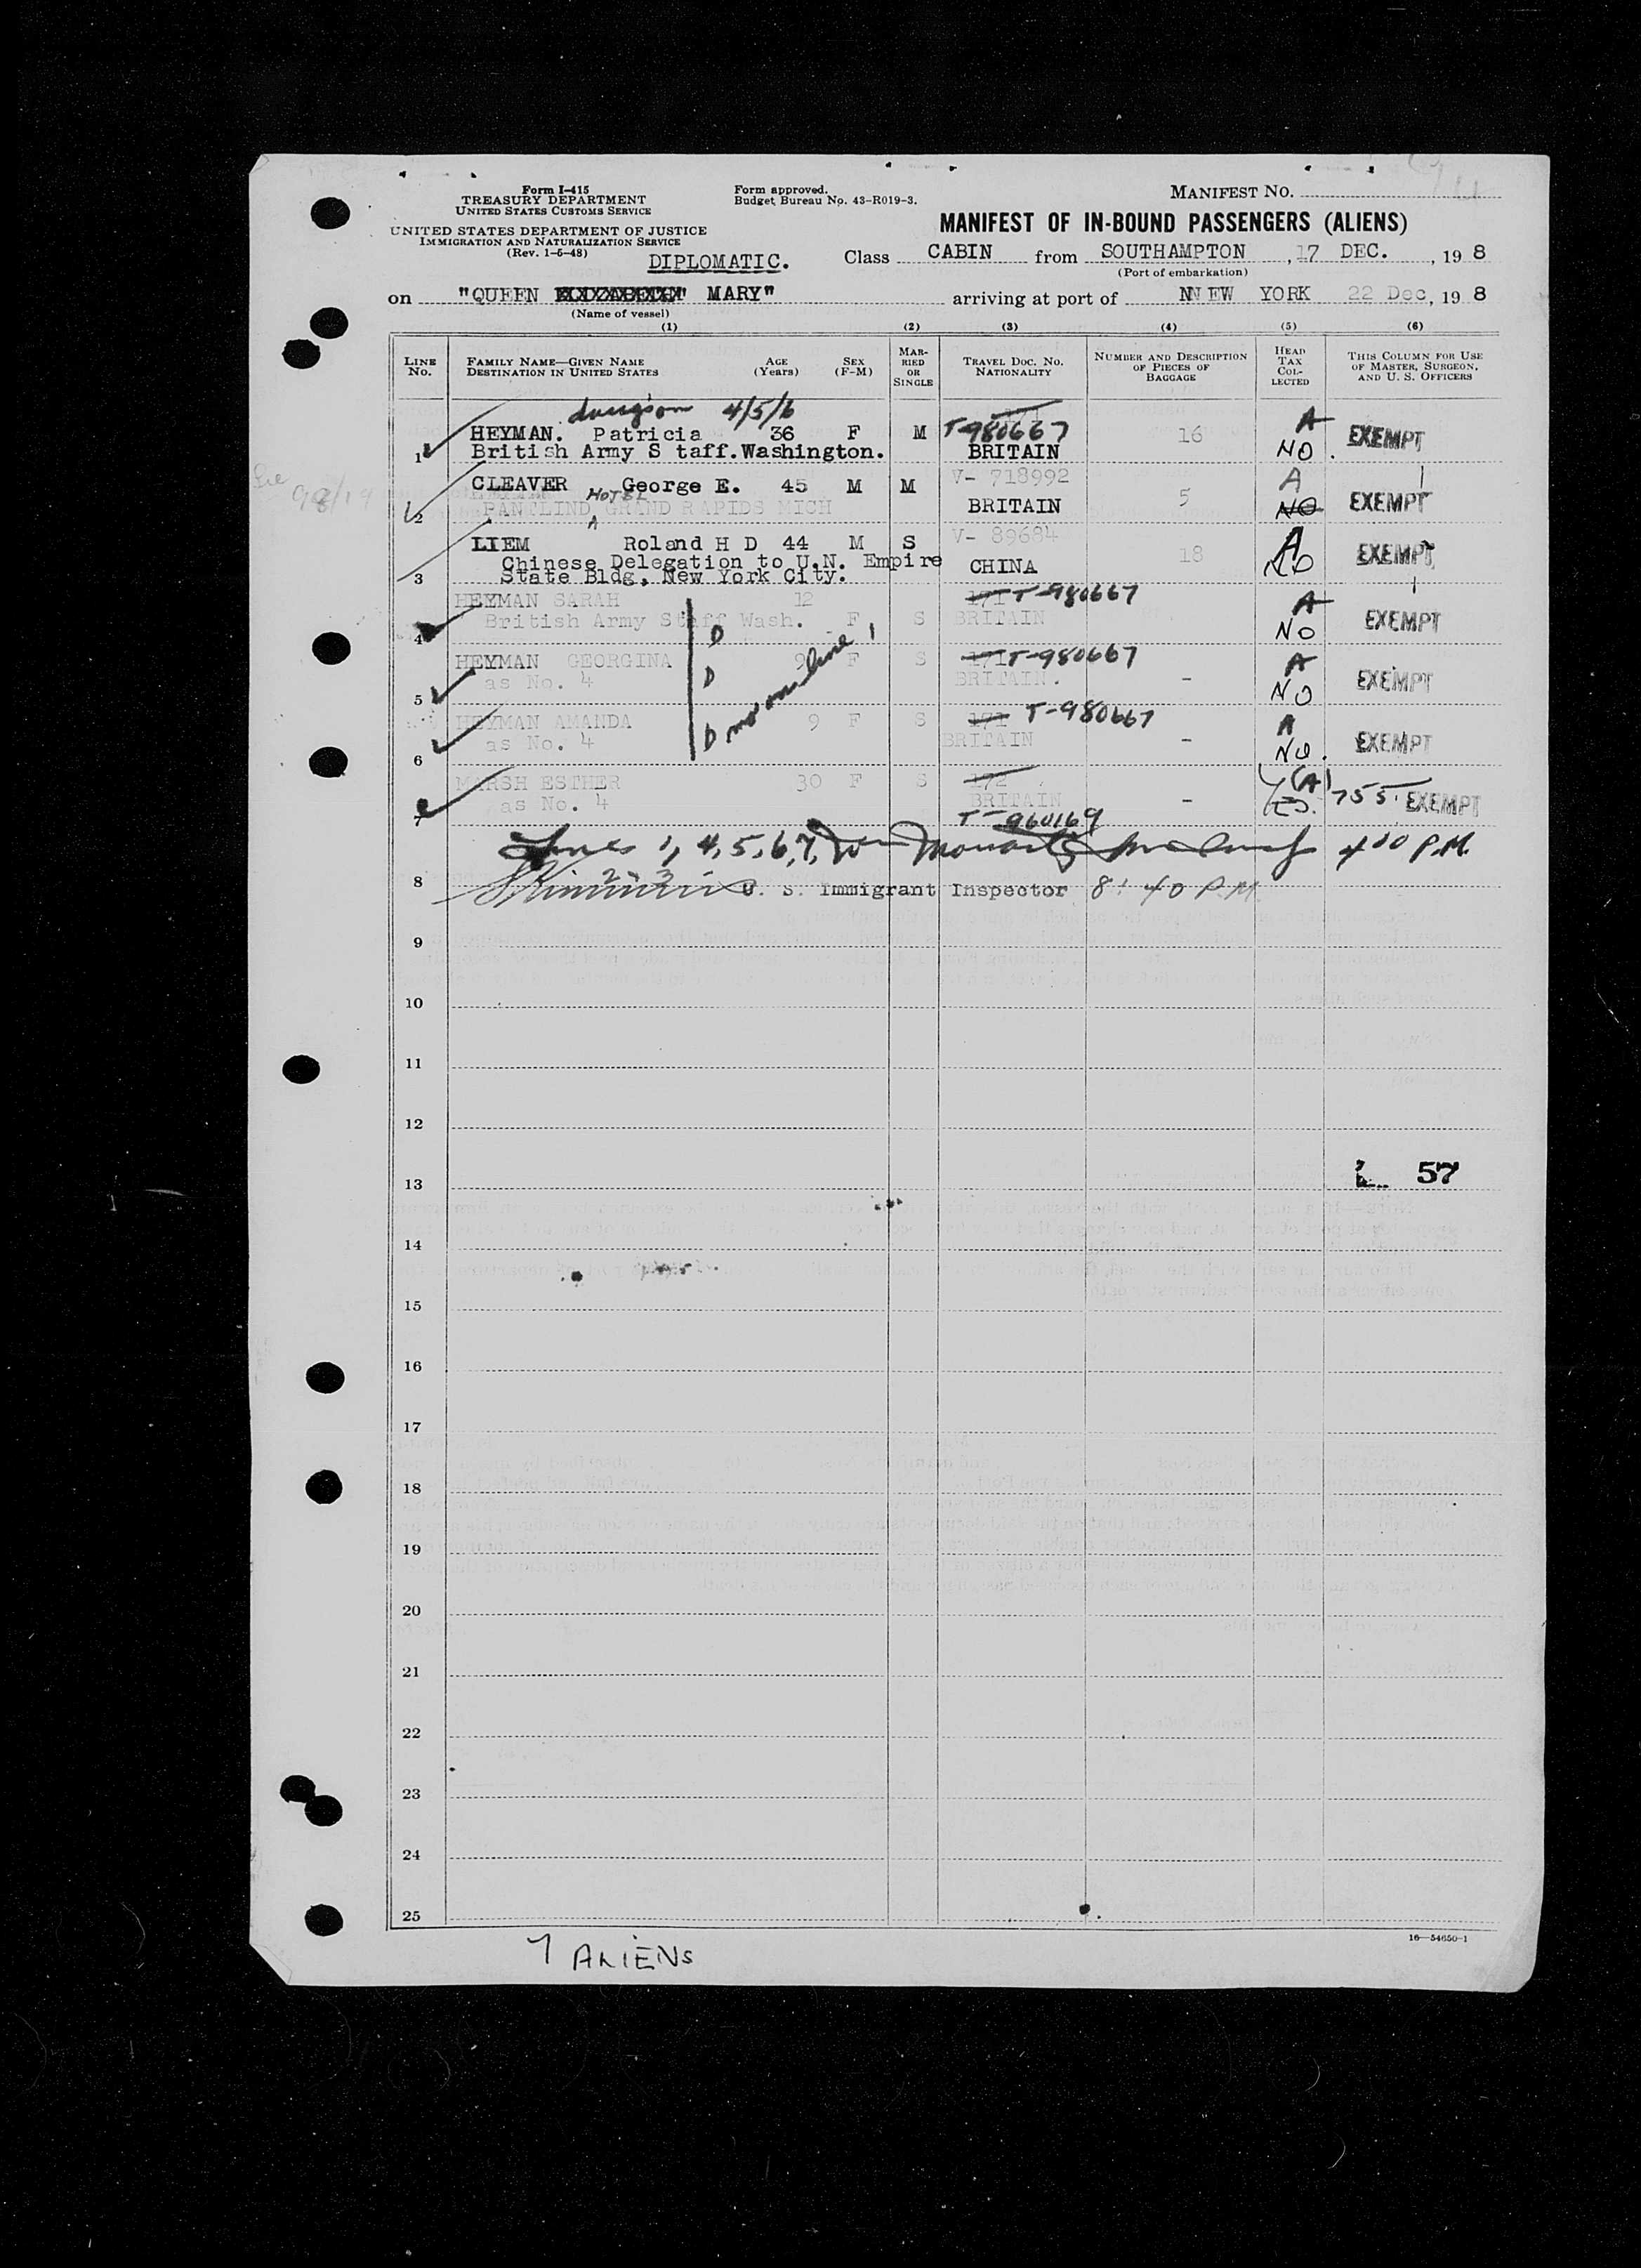 Form I-415
TREASURY DEPARTMENT
UNITED STATES CUSTOMS SERVICE
UNITED STATES DEPARTMENT OF JUSTICE
IMMIGRATION AND NATURALIZATION SERVICE
(Rev. 1-6-48)
Form approved.
Budget Bureau No. 43-R019-3.
MANIFEST NO.
MANIFEST OF IN-BOUND PASSENGERS (ALIENS)
DIPLOMATIC.
Class CABIN from SOUTHAMPTON, 17 DEC., 19 8
(Port of embarkation)
on "QUEEN MARY" arriving at port of NNEW YORK 22 Dec, 19 8
(Name of vessel)
(1) (2) (3) (4) (5) (6)
LINE NO. FAMILY NAME—GIVEN NAME DESTINATION IN UNITED STATES AGE (Years) SEX (F-M) MARRIED OR SINGLE TRAVEL DOC. NO. NATIONALITY NUMBER AND DESCRIPTION OF PIECES OF BAGGAGE HEAD TAX COLLECTED THIS COLUMN FOR USE OF MASTER, SURGEON, AND U. S. OFFICERS
4/5/6
HEYMAN. Patricia 36 F M T-980667 16 A EXEMPT
1 British Army S taff. Washington. BRITAIN NO.
CLEAVER George E. 45 M M V- 718992 5 A EXEMPT
HOTEL
2 PANTLIND GRAND RAPIDS MICH BRITAIN NO
LIEM Roland H D 44 M S V- 89684 18 A EXEMPT
Chinese Delegation to U.N. Empire CHINA NO
3 State Bldg, New York City.
HEYMAN SARAH 12 171 T-980667 A EXEMPT
4 British Army Staff Wash. F S BRITAIN NO
D
HEYMAN GEORGINA 9 F S 171 T-980667 A EXEMPT
5 as No. 4 D BRITAIN. - NO
HEYMAN AMANDA 9 F S 171 T-980667 A EXEMPT
6 as No. 4 D mom on line 1 BRITAIN - NO.
MARSH ESTHER 30 F S 172 (A) 755 EXEMPT
7 as No. 4 BRITAIN - YES.
T-960169
Lines 1, 4, 5, 6, 7, 4 00 P.M.
2 - 3
8 U. S. Immigrant Inspector 8:40 P.M.
9
10
11
12
13 57
14
15
16
17
18
19
20
21
22
23
24
25
16—54650-1
7 ALIENS